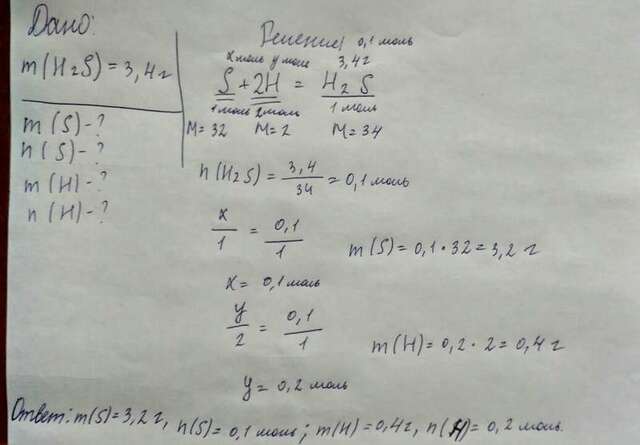 Дано:
m(H₂S) = 3,4 г
m(S) - ?
n(S) - ?
m(H) - ?
n(H) - ?
Решение: 0,1 моль
x моль y моль 3,4 г
S + 2H = H₂S
1 моль 2 моль 1 моль
M = 32 M = 2 M = 34
n(H₂S) = 3,4/34 = 0,1 моль
x/1 = 0,1/1
m(S) = 0,1 · 32 = 3,2 г
x = 0,1 моль
y/2 = 0,1/1
m(H) = 0,2 · 2 = 0,4 г
y = 0,2 моль
Ответ: m(S) = 3,2 г, n(S) = 0,1 моль; m(H) = 0,4 г, n(H) = 0,2 моль.